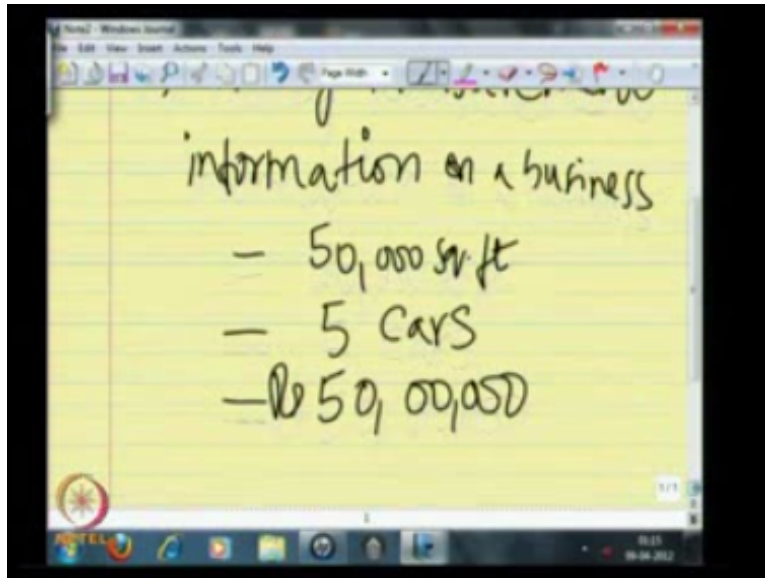 Note2 - Windows Journal
File Edit View Insert Actions Tools Help
Page Width
information on a business
- 50,000 sq. ft
- 5 Cars
- Rs 50,00,000
1/1
1
NPTEL
01:15
09-04-2012